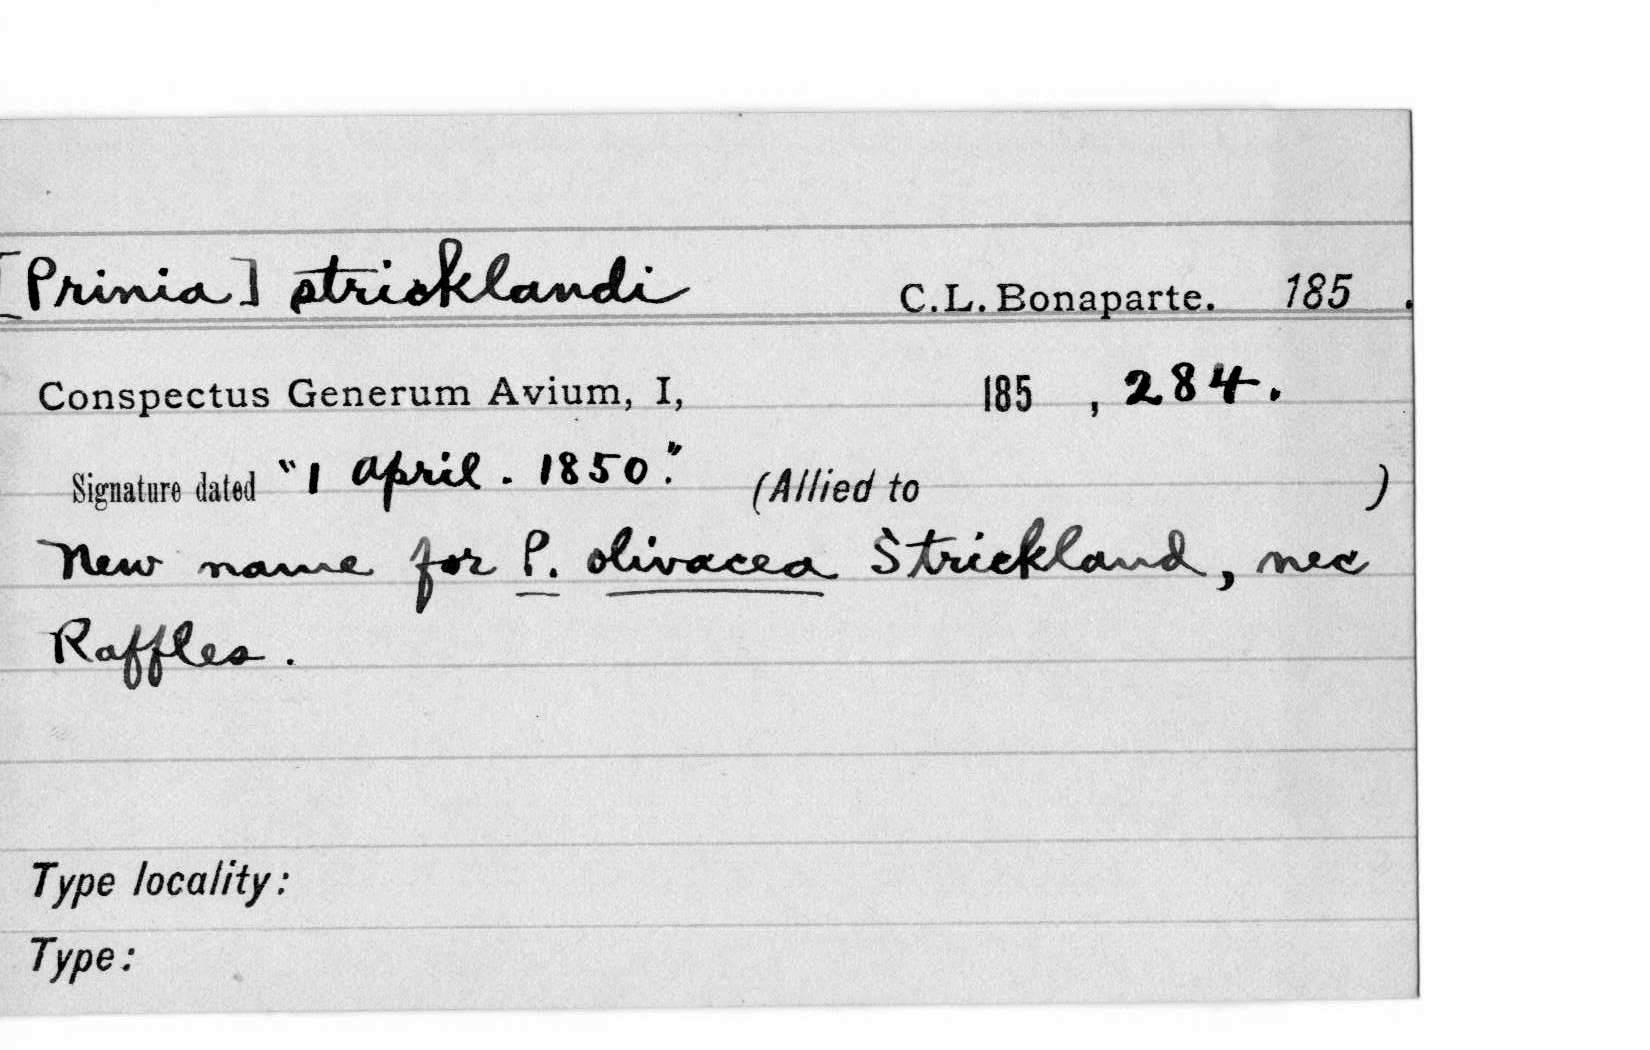 [Prinia] stricklandi C.L. Bonaparte. 185 .
Conspectus Generum Avium, I, 185 , 284.
Signature dated "1 April . 1850." (Allied to )
New name for P. olivacea Strickland, nec
Raffles.
Type locality:
Type: